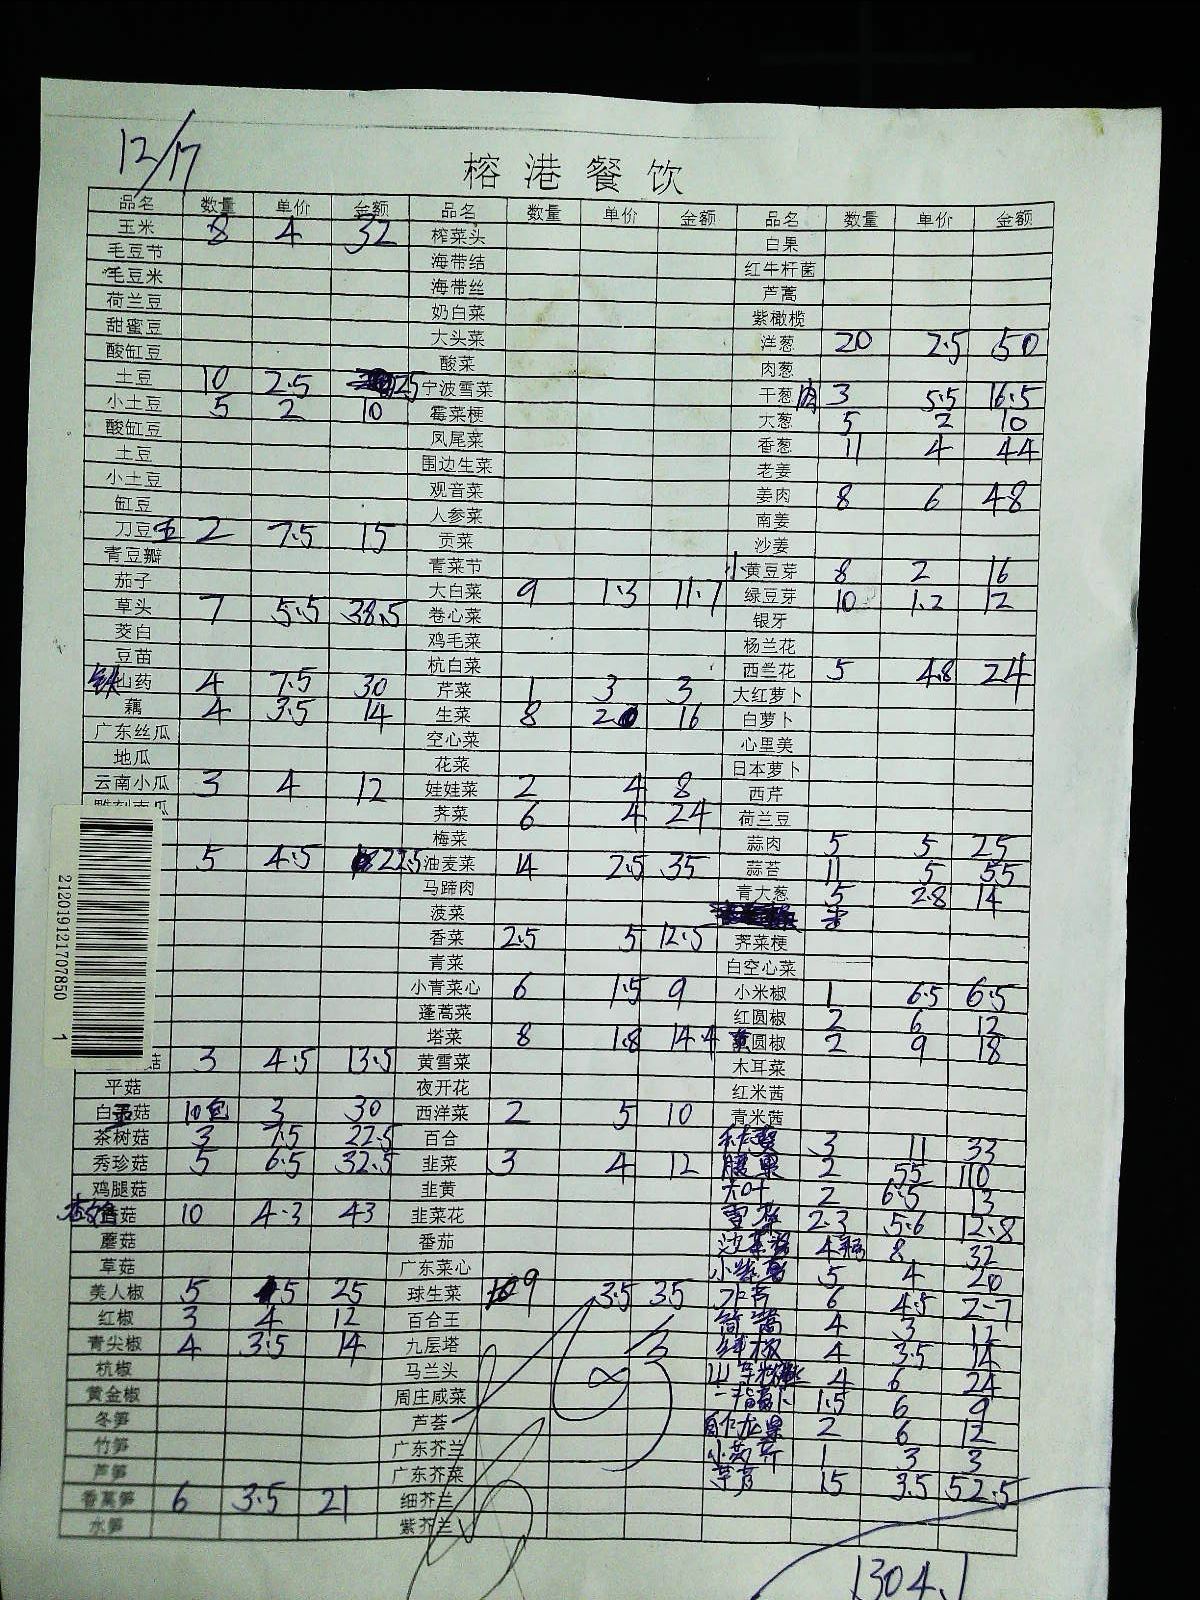 12/17
榕港餐饮
品名 数量 单价 金额 品名 数量 单价 金额 品名 数量 单价 金额
玉米 8 4 32 榨菜头 白果
毛豆节 海带结 红牛杆菌
毛豆米 海带丝 芦蒿
荷兰豆 奶白菜 紫橄榄
甜蜜豆 大头菜 洋葱 20 2.5 50
酸缸豆 酸菜 肉葱
土豆 10 2.5 25 宁波雪菜 干葱肉 3 5.5 16.5
小土豆 5 2 10 霉菜梗 大葱 5 2 10
酸缸豆 凤尾菜 香葱 11 4 44
土豆 围边生菜 老姜
小土豆 观音菜 姜肉 8 6 48
缸豆 人参菜 南姜
刀豆 2 7.5 15 贡菜 沙姜
青豆瓣 青菜节 小黄豆芽 8 2 16
茄子 大白菜 9 1.3 11.7 绿豆芽 10 1.2 12
草头 7 5.5 38.5 卷心菜 银牙
茭白 鸡毛菜 杨兰花
豆苗 杭白菜 西兰花 5 4.8 24
铁山药 4 7.5 30 芹菜 1 3 3 大红萝卜
藕 4 3.5 14 生菜 8 2 16 白萝卜
广东丝瓜 空心菜 心里美
地瓜 花菜 日本萝卜
云南小瓜 3 4 12 娃娃菜 2 4 8 西芹
荠菜 6 4 24 荷兰豆
梅菜 蒜肉 5 5 25
5 4.5 22.5 油麦菜 14 2.5 35 蒜苔 11 5 55
马蹄肉 青大葱 5 2.8 14
菠菜
香菜 2.5 5 12.5 荠菜梗
青菜 白空心菜
小青菜心 6 1.5 9 小米椒 1 6.5 6.5
蓬蒿菜 红圆椒 2 6 12
塔菜 8 1.8 14.4 黄圆椒 2 9 18
菇 3 4.5 13.5 黄雪菜 木耳菜
平菇 夜开花 红米茜
白玉菇 10包 3 30 西洋菜 2 5 10 青米茜
茶树菇 3 7.5 22.5 百合 3 11 33
秀珍菇 5 6.5 32.5 韭菜 3 4 12 腰果 2 55 110
鸡腿菇 韭黄 2 6.5 13
香菇 10 4.3 43 韭菜花 2.3 5.6 12.8
蘑菇 番茄 沙茶酱 4瓶 8 32
草菇 广东菜心 5 4 20
美人椒 5 5 25 球生菜 3.5 35 6 4.5 2.7
红椒 3 4 12 百合王 4 3 12
青尖椒 4 3.5 14 九层塔 4 3.5 14
杭椒 马兰头 4 6 24
黄金椒 周庄咸菜 1.5 6 9
冬笋 芦荟 2 6 12
竹笋 广东芥兰 1 3 3
芦笋 广东芥菜 芋艿 15 3.5 52.5
香莴笋 6 3.5 21 细芥兰
水笋 紫芥兰
1304.1
212019121707850 1